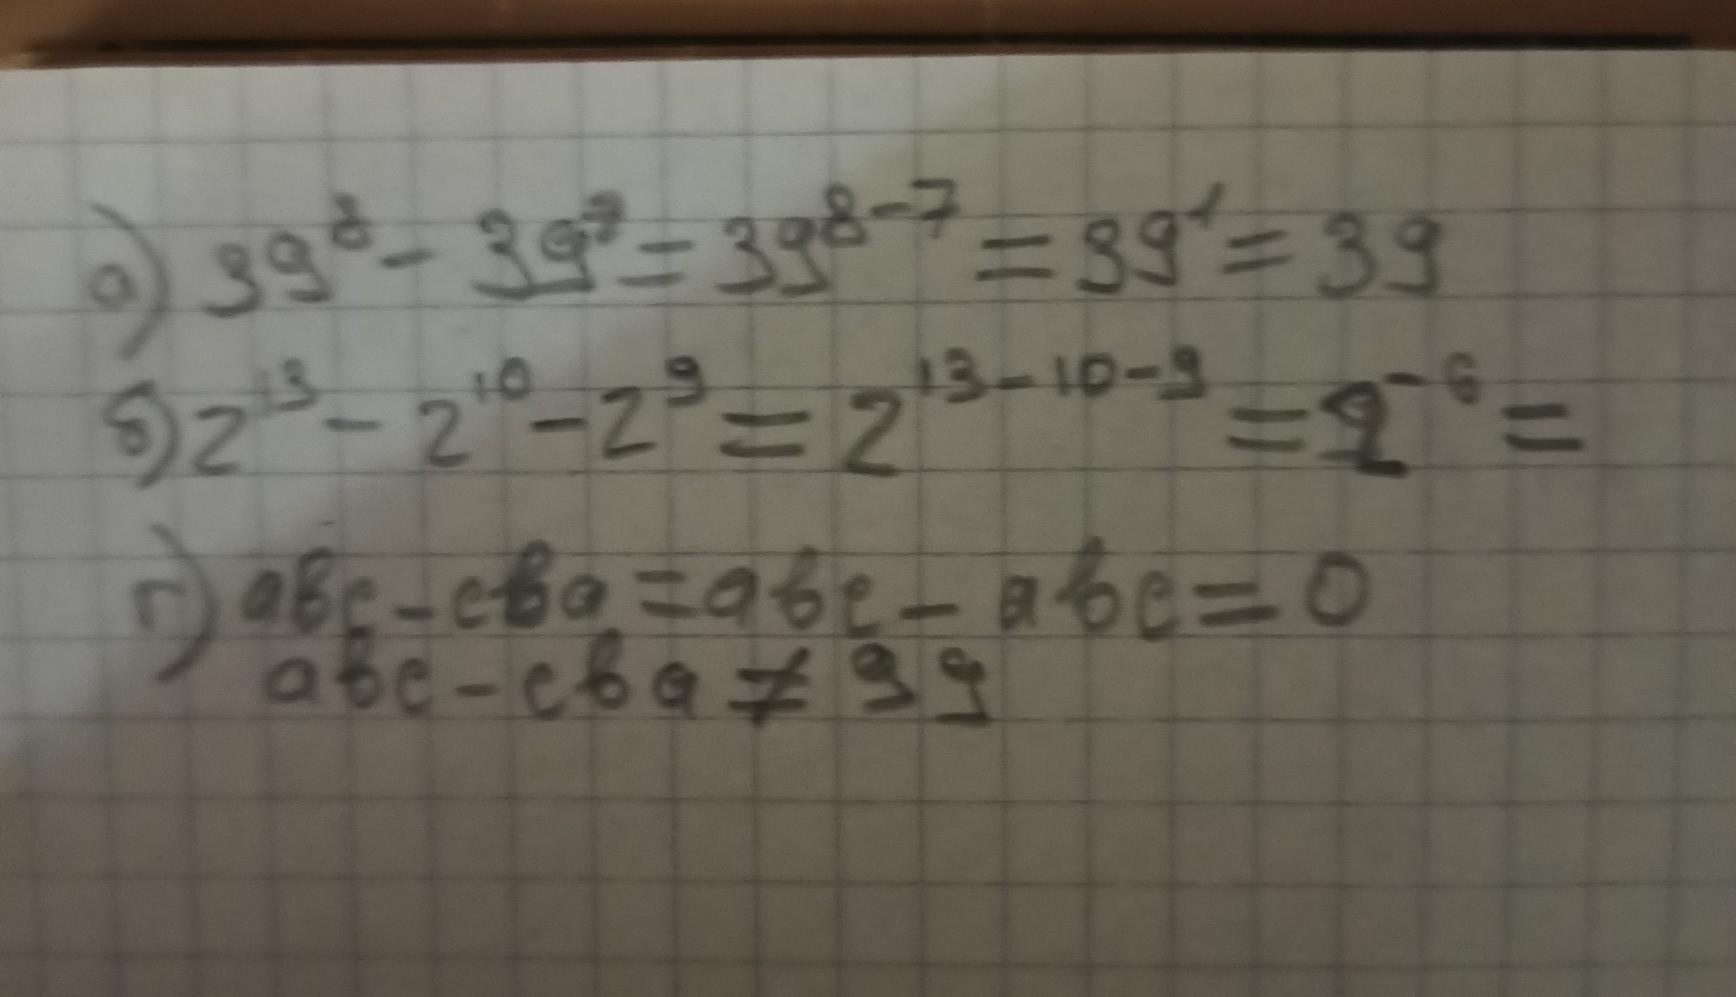 а) 39⁸ - 39⁷ = 39⁸⁻⁷ = 39¹ = 39
б) 2¹³ - 2¹⁰ - 2⁹ = 2¹³⁻¹⁰⁻⁹ = 2⁻⁶ =
г) abc - cba = abc - abc = 0
abc - cba ≠ 99